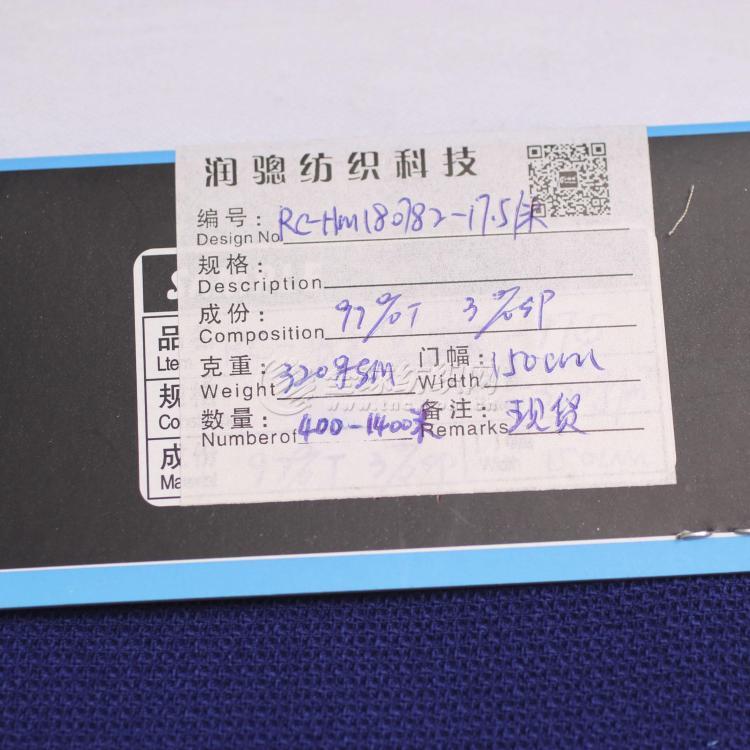 润骢纺织科技
编号: RC-HM180782-17.5/米
Design No
规格:
Description
成份: 97%T 3%SP
Composition
克重: 320GSM 门幅: 150cm
Weight Width
数量: 400-1400米 备注: 现货
Numberof Remarks
品
Lte
规
Con
成
Ma
97%T 3%SP